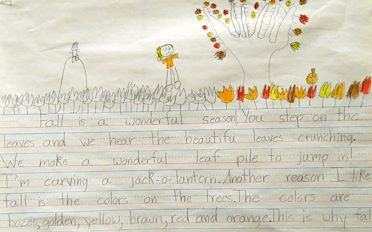 Fall is a wonderful season. You step on the
leaves and we hear the beautiful leaves crunching.
We make a wonderful leaf pile to jump in!
I'm carving a jack-o-lantern. Another reason I like
fall is the colors on the trees. The colors are
golden, yellow, brown, red and orange. This is why fal